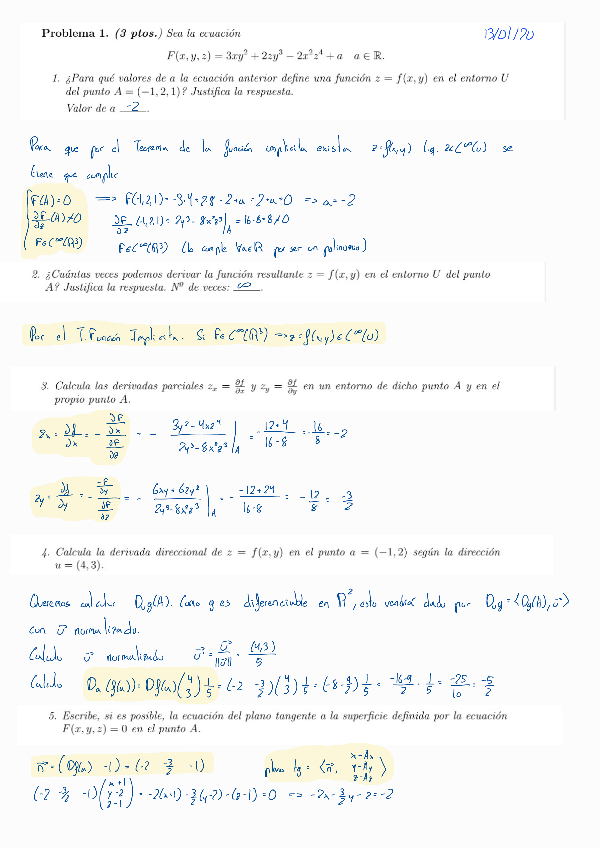 Problema 1. (3 ptos.) Sea la ecuación
13/01/20
F(x, y, z) = 3xy² + 2zy³ − 2x²z⁴ + a   a ∈ ℝ.
1. ¿Para qué valores de a la ecuación anterior define una función z = f(x, y) en el entorno U
del punto A = (−1, 2, 1)? Justifica la respuesta.
Valor de a -2.
Para que por el Teorema de la función implicita exista z=f(x,y) t.q. z∈C^∞(U) se
tiene que cumplir
F(A)=0 ⟹ F(-1,2,1) = -3·4+2·8-2+a = 2+a=0 ⟹ a=-2
∂F/∂z (A)≠0   ∂F/∂z (-1,2,1) = 2y³-8x²z³|_A = 16-8=8≠0
F∈C^∞(ℝ³)   F∈C^∞(ℝ³) (lo cumple ∀a∈ℝ por ser un polinomio)
2. ¿Cuántas veces podemos derivar la función resultante z = f(x, y) en el entorno U del punto
A? Justifica la respuesta. Nº de veces: ∞.
Por el T. Función Implicita. Si F∈C^∞(ℝ³) ⟹ z=f(x,y)∈C^∞(U)
3. Calcula las derivadas parciales z_x = ∂f/∂x y z_y = ∂f/∂y en un entorno de dicho punto A y en el
propio punto A.
z_x = ∂f/∂x = - (∂F/∂x)/(∂F/∂z) = - (3y²-4xz⁴)/(2y³-8x²z³)|_A = -(12+4)/(16-8) = -16/8 = -2
z_y = ∂f/∂y = - (∂F/∂y)/(∂F/∂z) = - (6xy+6zy²)/(2y³-8x²z³)|_A = - (-12+24)/(16-8) = -12/8 = -3/2
4. Calcula la derivada direccional de z = f(x, y) en el punto a = (−1, 2) según la dirección
u = (4, 3).
Queremos calcular D_u f(A). Como f es diferenciable en ℝ², esto vendrá dado por D_u f = ⟨Df(A), u⟩
con u normalizado.
Calculo u normalizado   u = u/||u|| = (4,3)/5
Calculo D_u(f(a)) = Df(a)(4 3)1/5 = (-2 -3/2)(4 3)1/5 = (-8-9/2)1/5 = (-16-9)/2 · 1/5 = -25/10 = -5/2
5. Escribe, si es posible, la ecuación del plano tangente a la superficie definida por la ecuación
F(x, y, z) = 0 en el punto A.
n = (Df(a) -1) = (-2 -3/2 -1)   plano tg = ⟨n, x-Ax y-Ay z-Az⟩
(-2 -3/2 -1)(x+1 y-2 z-1) = -2(x+1)-3/2(y-2)-(z-1)=0 ⟹ -2x-3/2y-z=-2